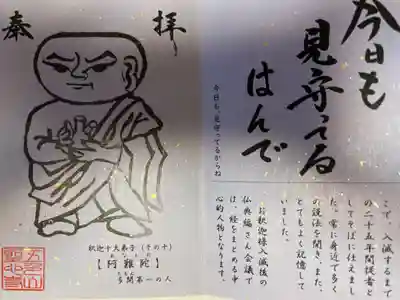 奉 拝
釈迦十大弟子（その十）
【阿難陀】
多聞第一の人
今日も
見守ってる
はんで
今日も、見守ってるからね
こで、入滅するまで
の二十五年間侍者と
してそばに仕えまし
た。常に身近で多く
の説法を聞き、また、
とてもよく記憶して
いました。
お釈迦様入滅後の
仏典編さん会議で
は、経をまとめる中
心的人物となります。